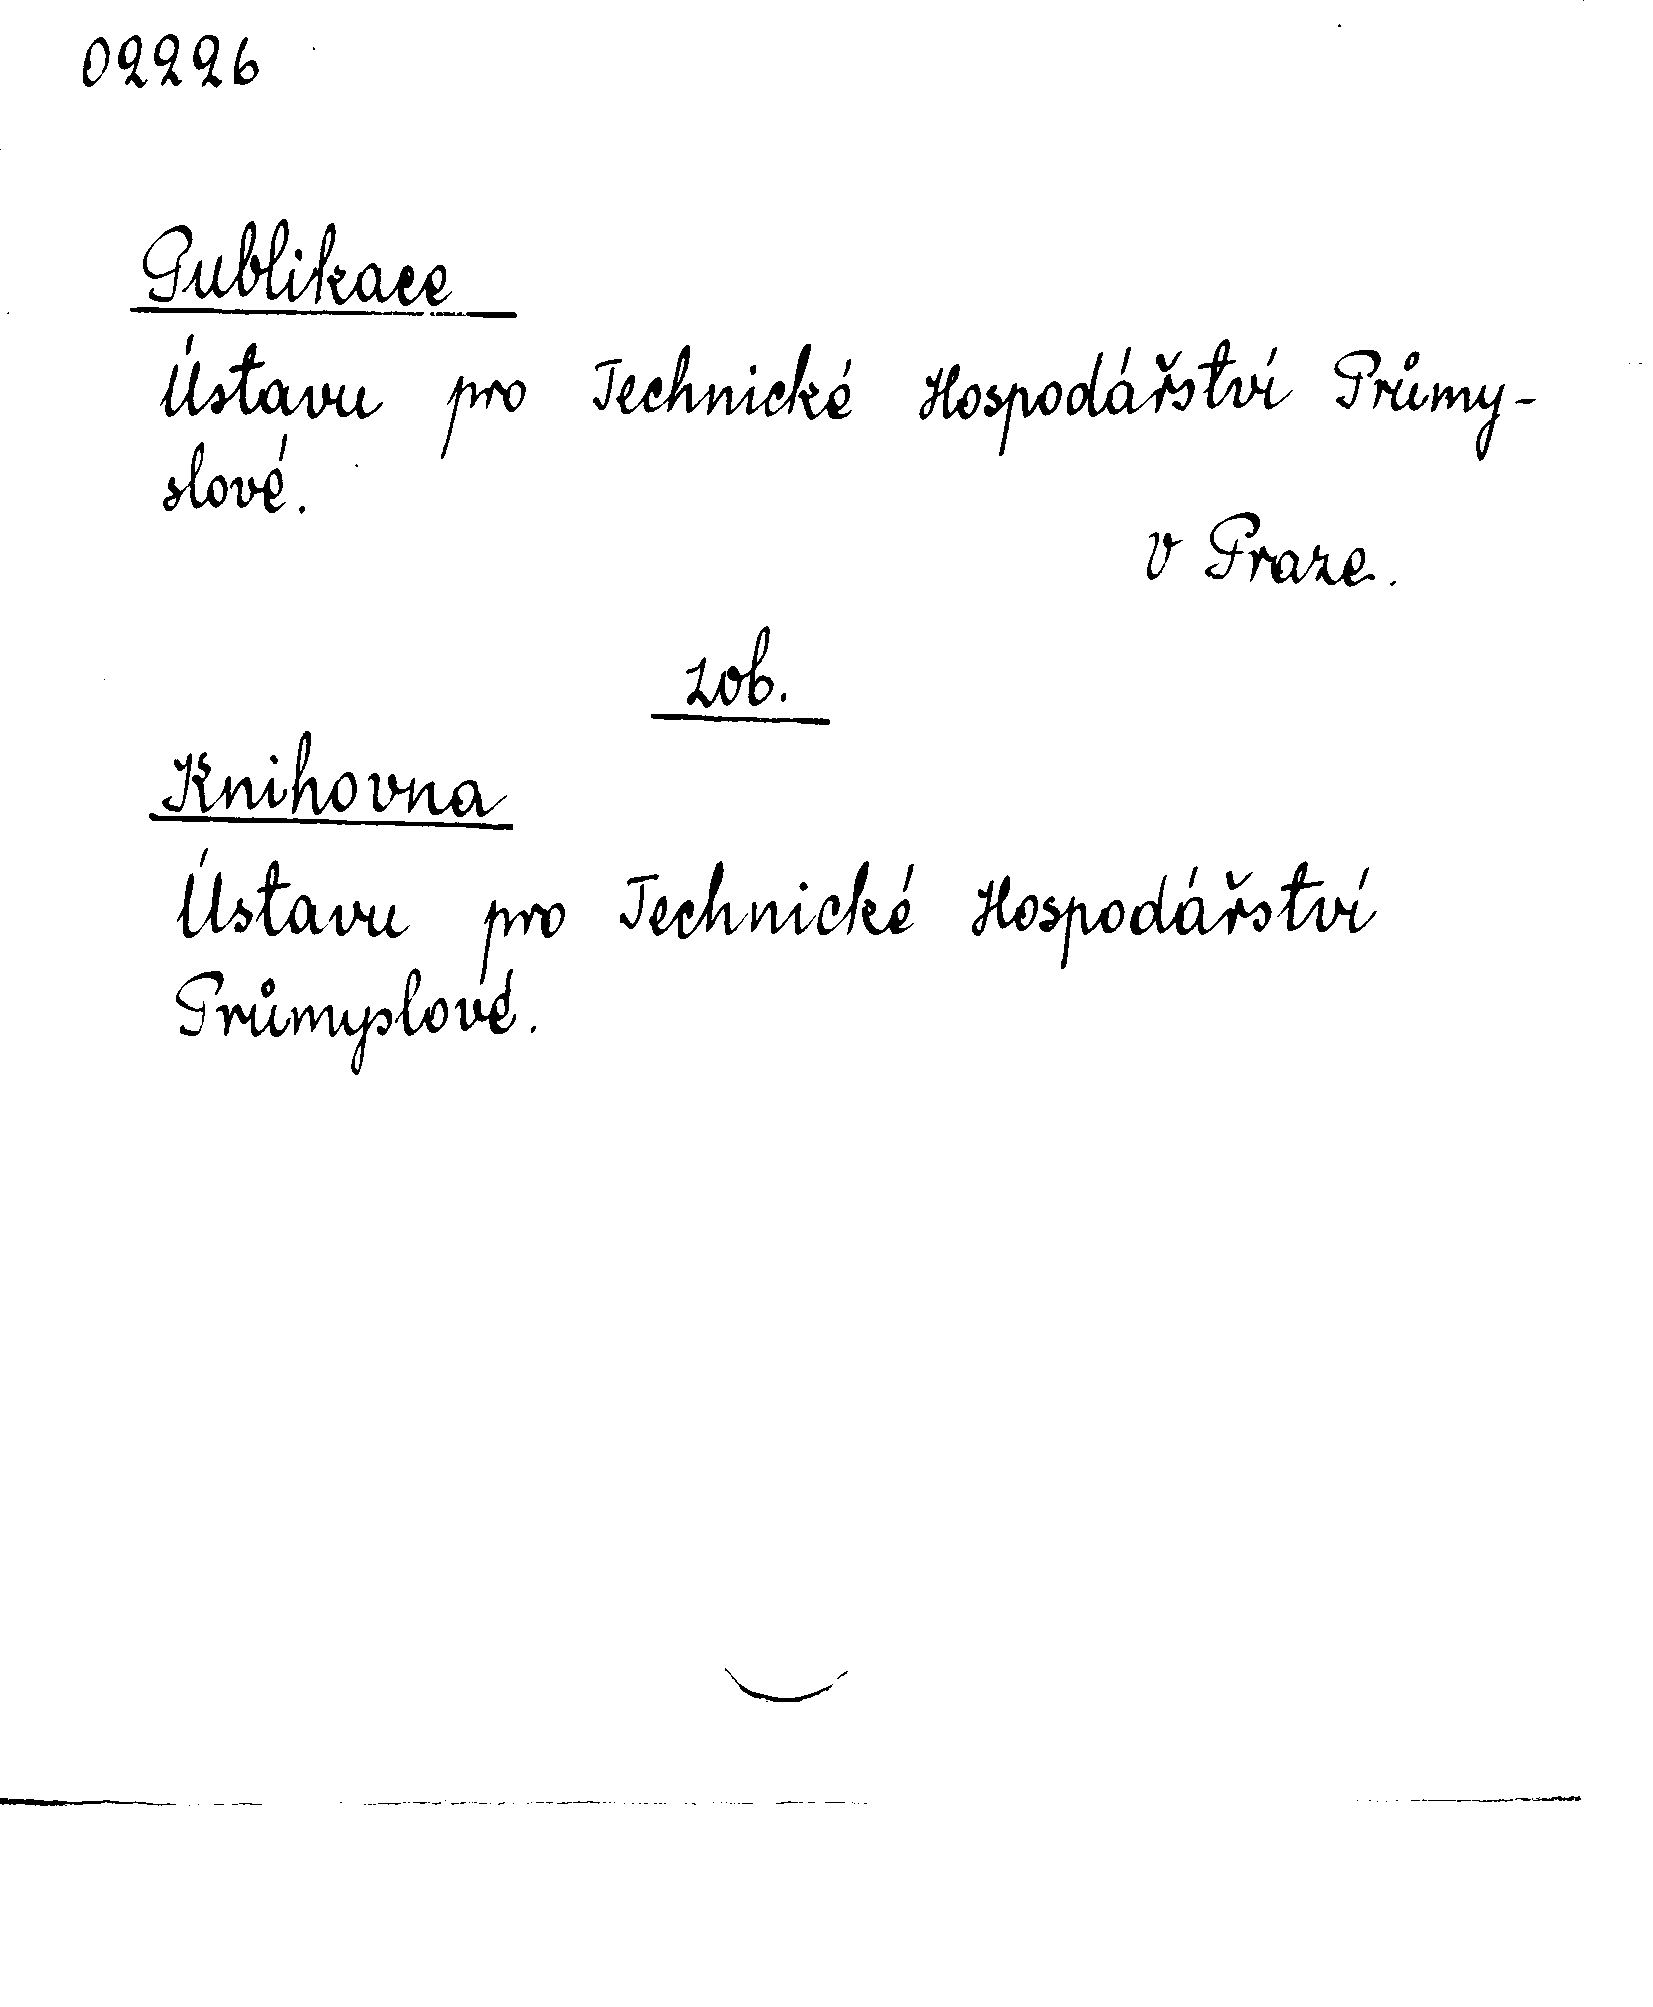 02226
Publikace
Ústavu pro Technické Hospodářství Průmy-
slové.
v Praze.
zob.
Knihovna
Ústavu pro Technické Hospodářství
Průmyslové.